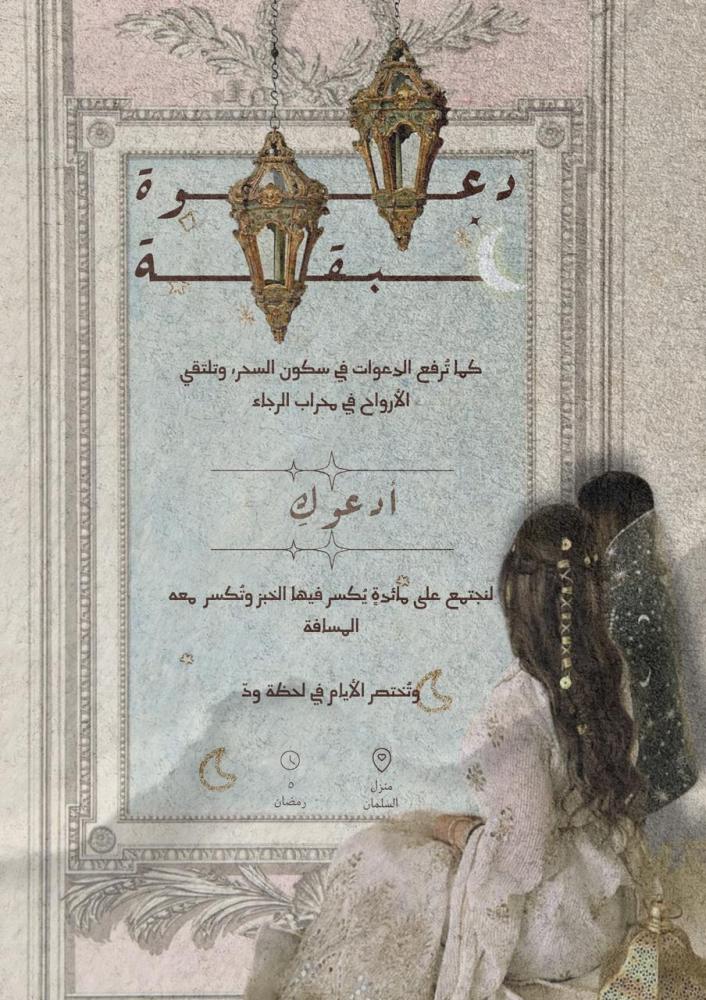 دعوة
غبقة
كما تُرفع الدعوات في سكون السحر، وتلتقي
الأرواح في محراب الرجاء
أدعوكِ
لنجتمع على مائدةٍ يُكسر فيها الخبز وتُكسر معه
المسافة
وتُختصر الأيام في لحظة ودّ
منزل
السلمان
٥
رمضان